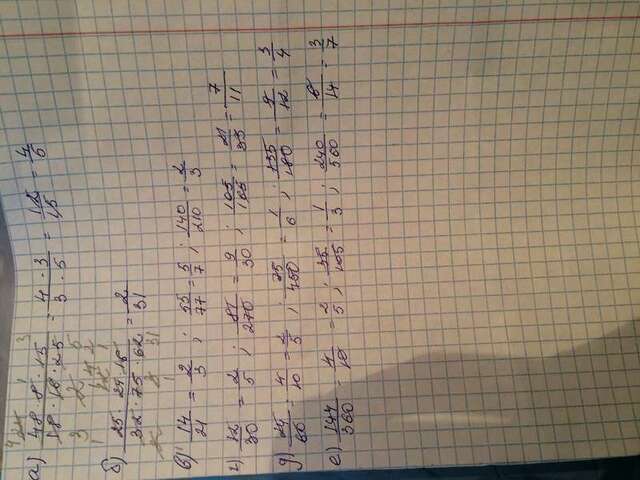 а) 48 · 8 · 15 / 18 · 16 · 25 = 4 · 3 / 3 · 5 = 12/15 = 4/5
б) 25 · 24 · 16 / 32 · 75 · 62 = 2/31
в) 14/21 = 2/3 ; 55/77 = 5/7 ; 140/210 = 2/3
г) 12/30 = 2/5 ; 81/270 = 9/30 ; 105/165 = 21/33 = 7/11
д) 24/60 = 4/10 = 2/5 ; 75/450 = 1/6 ; 135/180 = 9/12 = 3/4
е) 144/360 = 4/10 = 2/5 ; 35/105 = 1/3 ; 240/560 = 6/14 = 3/7